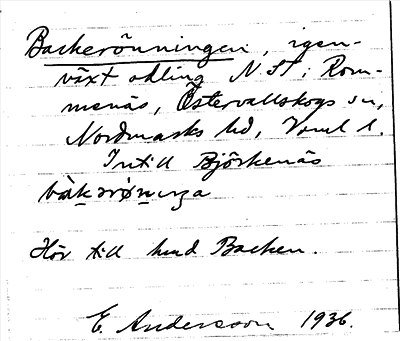 Backerönningen, igen-
växt odling N St i Rom-
menäs, Östervallskogs sn,
Nordmarks hd, Vrml l.
Intill Björkenäs
Hör till hmd Backen.
E. Andersson 1936.